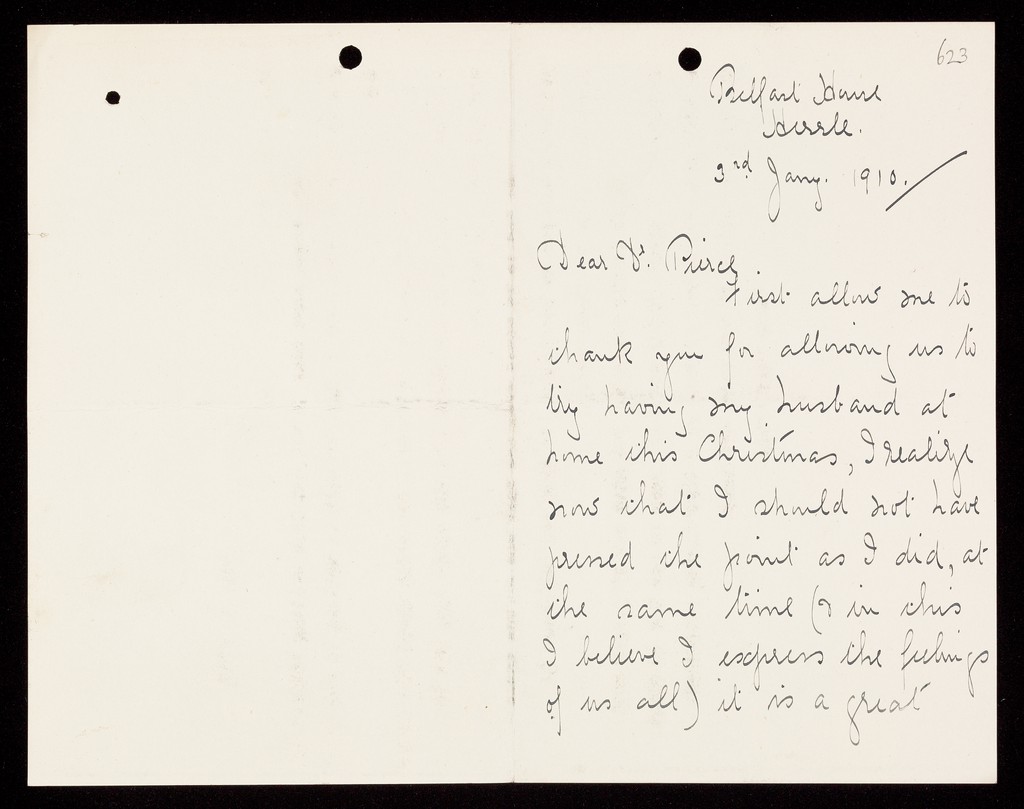 623
Belfast House
Hessle.
3rd Jany. 1910.
Dear Dr. Pierce,
First allow me to
thank you for allowing us to
try having my husband at
home this Christmas, I realize
now that I should not have
pressed the point as I did, at
the same time (& in this
I believe I express the feelings
of us all) it is a great